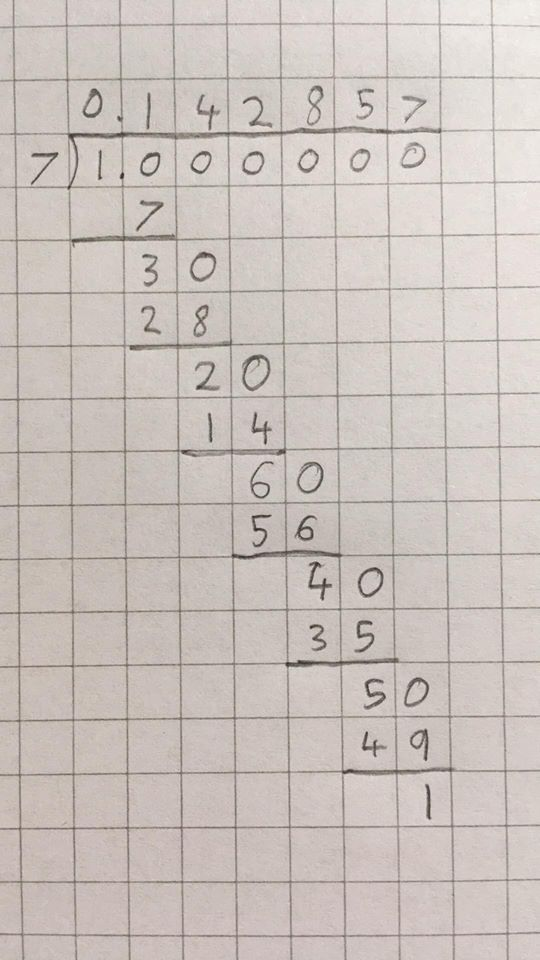 0.142857
7)1.000000
7
30
28
20
14
60
56
40
35
50
49
1